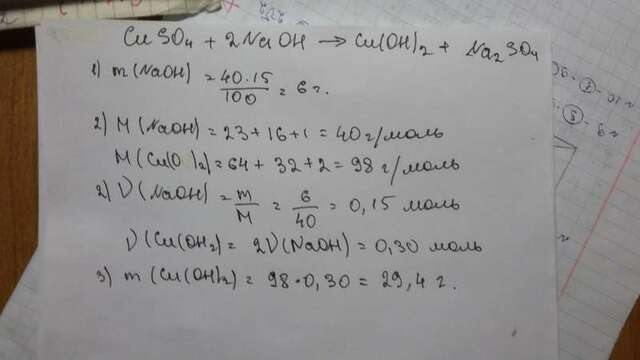 CuSO₄ + 2NaOH → Cu(OH)₂ + Na₂SO₄
1) m(NaOH) = 40·15/100 = 6 г.
2) M(NaOH) = 23+16+1 = 40 г/моль
M(Cu(O )₂) = 64 + 32 + 2 = 98 г/моль
2) ν(NaOH) = m/M = 6/40 = 0,15 моль
ν(Cu(OH₂) = 2ν(NaOH) = 0,30 моль
3) m(Cu(OH)₂) = 98·0,30 = 29,4 г.